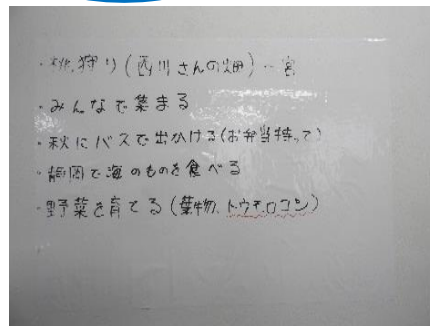 ・桃狩り(西川さんの畑)一宮
・みんなで集まる
・秋にバスで出かける(お弁当持って)
・静岡で海のものを食べる
・野菜を育てる(葉物、トウモロコシ)